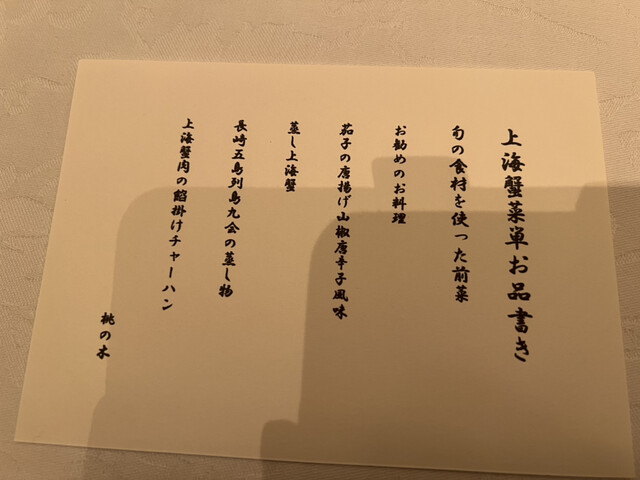 上海蟹菜単お品書き
旬の食材を使った前菜
お勧めのお料理
茄子の唐揚げ山椒唐辛子風味
蒸し上海蟹
長崎五島列島九会の蒸し物
上海蟹肉の餡掛けチャーハン
桃の木